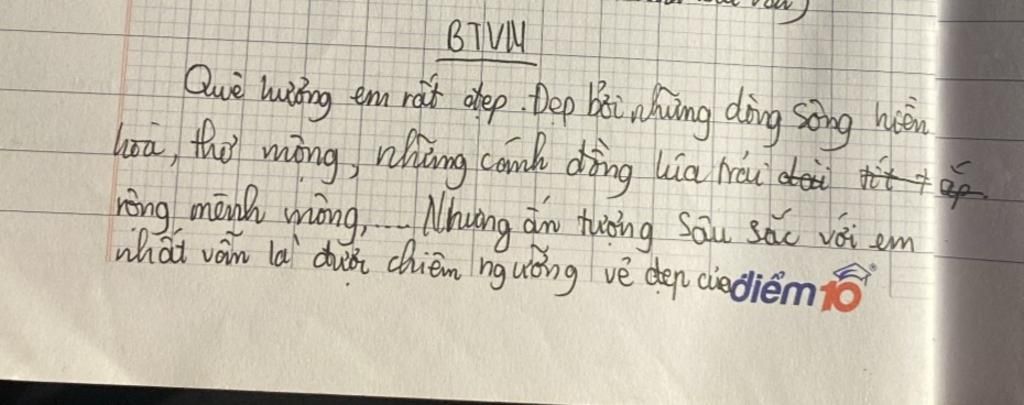 BTVN
Quê hương em rất đẹp. Đẹp bởi những dòng sông hiền
hoà, thơ mộng, những cánh đồng lúa trải
rộng mênh mông,... Nhưng ấn tượng sâu sắc với em
nhất vẫn là được chiêm ngưỡng vẻ đẹp của
điểm10